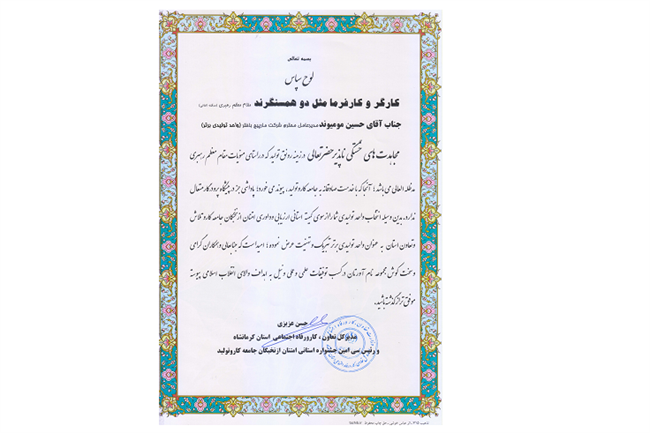 بسمه تعالی
لوح سپاس
کارگر و کارفرما مثل دو همسنگرند مقام معظم رهبری
جناب آقای حسین مومیوند مدیرعامل محترم شرکت مارپیچ باختر (واحد تولیدی برتر)
مجاهدت های خستگی ناپذیر حضرتعالی در زمینه رونق تولید که در راستای منویات مقام معظم رهبری
مدظله العالی می باشد؛ آنجا که با خدمت صادقانه به جامعه کار و تولید، پیوند می خورد؛ پاداشی جز در پیشگاه پروردگار متعال
ندارد. بدین وسیله انتخاب واحد تولیدی شما را از سوی کمیته استانی ارزیابی و داوری امتنان از نخبگان جامعه کار و تلاش
و تعاون استان به عنوان واحد تولیدی برتر تبریک و تهنیت عرض نموده؛ امید است که جنابعالی و همکاران گرامی
و سخت کوش مجموعه نام آورتان در کسب توفیقات علمی و عملی و نیل به اهداف والای انقلاب اسلامی پیوسته
موفق تر از گذشته باشید.
حسن عزیزی
مدیرکل تعاون ، کار و رفاه اجتماعی استان کرمانشاه
و رئیس سی امین جشنواره استانی امتنان از نخبگان جامعه کار و تولید